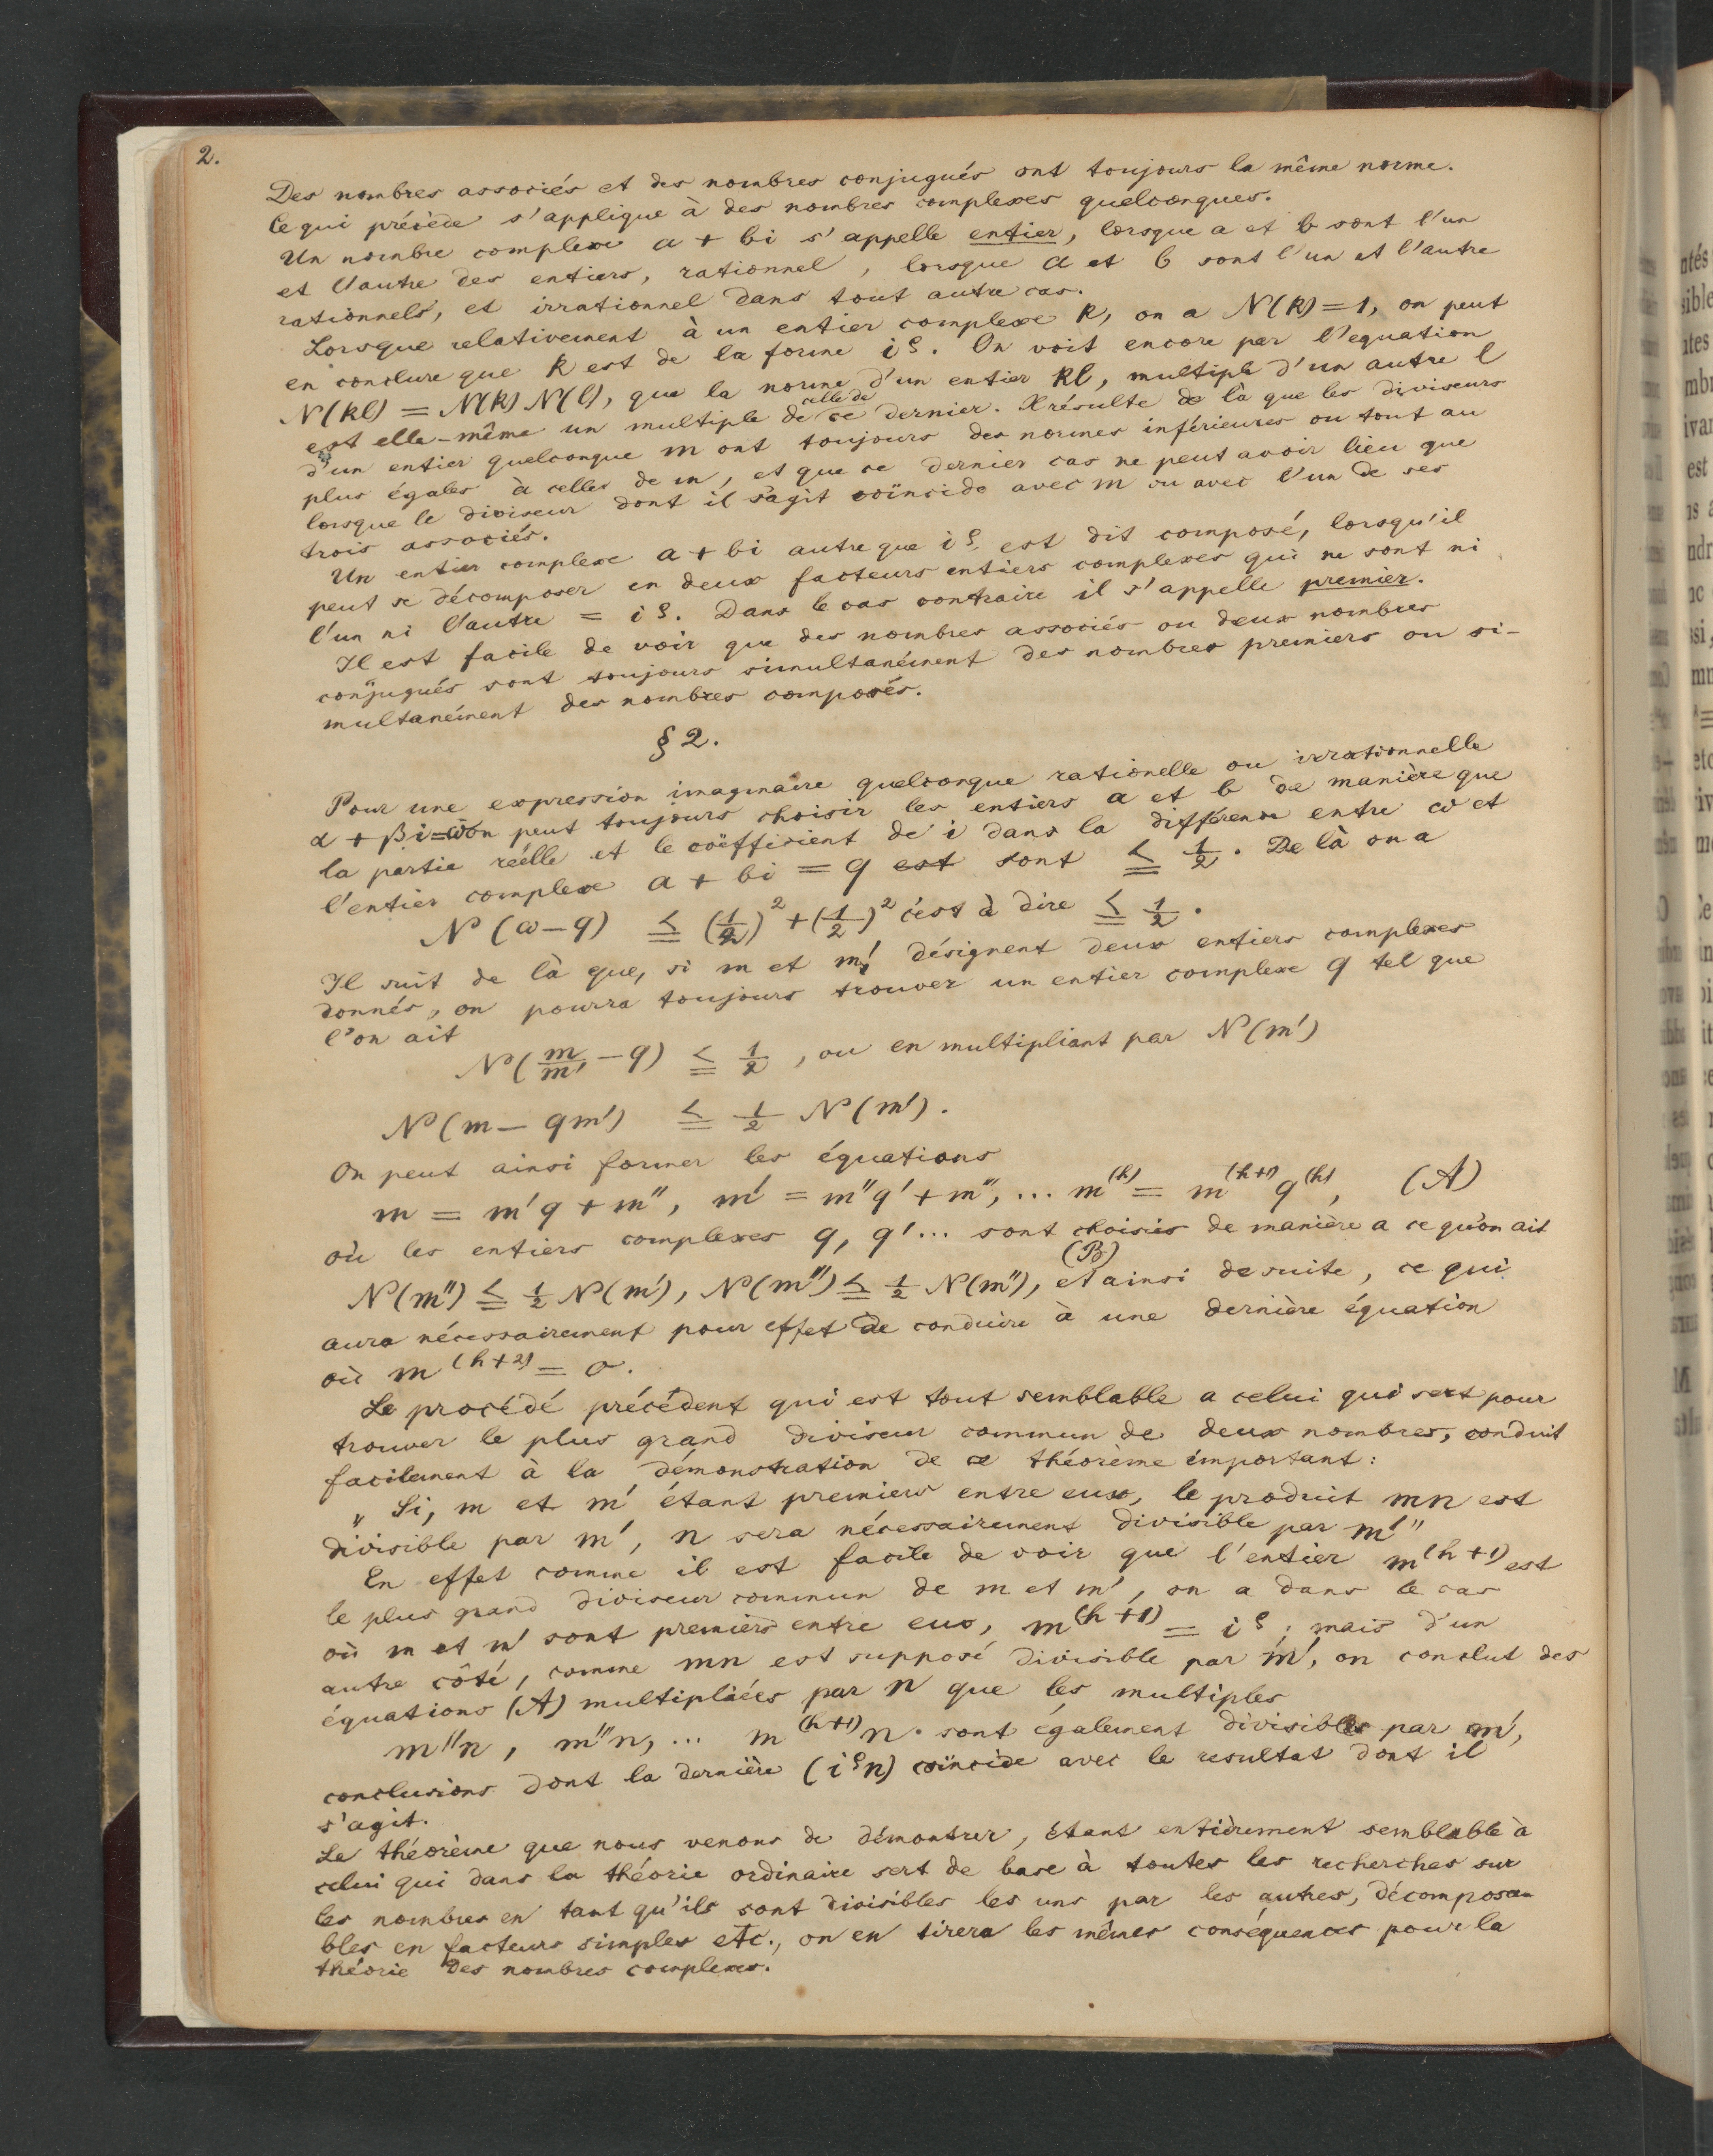 2.
Des nombres associés et des nombres conjugués ont toujours la même norme.
Ce qui précède s'applique à des nombres complexes quelconques.
Un nombre complexe a + bi s'appelle entier, lorsque a et b sont l'un
et l'autre des entiers, rationnel, lorsque a et b sont l'un et l'autre
rationnels, et irrationnel dans tout autre cas.
Lorsque relativement à un entier complexe k, on a N(k) = 1, on peut
en conclure que k est de la forme i^ϱ. On voit encore par l'equation
N(kl) = N(k) N(l), que la norme d'un entier kl, multiple d'un autre l
est elle-même un multiple de celle de ce dernier. Il résulte de là que les diviseurs
d'un entier quelconque m ont toujours des normes inférieures ou tout au
plus égales à celles de m, et que ce dernier cas ne peut avoir lieu que
lorsque le diviseur dont il s'agit coïncide avec m ou avec l'un de ses
trois associés.
Un entier complexe a + bi autre que i^ϱ est dit composé, lorsqu'il
peut se décomposer en deux facteurs entiers complexes qui ne sont ni
l'un ni l'autre = i^ϱ. Dans le cas contraire il s'appelle premier.
Il est facile de voir que des nombres associés ou deux nombres
conjugués sont toujours simultanément des nombres premiers ou si-
multanément des nombres composés.
§ 2.
Pour une expression imaginaire quelconque rationelle ou irrationnelle
α + βi = ω on peut toujours choisir les entiers a et b de manière que
la partie réelle et le coëfficient de i dans la différence entre ω et
l'entier complexe a + bi = q est sont ≦ 1/2. De là on a
N(ω − q) ≦ (1/2)^2 + (1/2)^2 c'est à dire ≦ 1/2.
Il suit de là que, si m et m' désignent deux entiers complexes
donnés, on pourra toujours trouver un entier complexe q tel que
l'on ait
N(m/m' − q) ≦ 1/2, ou en multipliant par N(m')
N(m − qm') ≦ 1/2 N(m').
On peut ainsi former les équations
m = m'q + m'', m' = m''q' + m''', ... m^(h) = m^(h+1) q^(h), (A)
où les entiers complexes q, q' ... sont choisis de manière a ce qu'on ait
(B)
N(m'') ≦ 1/2 N(m'), N(m''') ≦ 1/2 N(m''), et ainsi de suite, ce qui
aura nécessairement pour effet de conduire à une dernière équation
où m^(h+2) = 0.
Le procédé précédent qui est tout semblable a celui qui sert pour
trouver le plus grand diviseur commun de deux nombres, conduit
facilement à la démonstration de ce théorème important:
„ Si, m et m' étant premiers entre eux, le produit mn est
divisible par m', n sera nécessairement divisible par m'"
En effet comme il est facile de voir que l'entier m^(h+1) est
le plus grand diviseur commun de m et m', on a dans le cas
où m et m' sont premiers entre eux, m^(h+1) = i^ϱ; mais d'un
autre côté, comme mn est supposé divisible par m', on conclut des
équations (A) multipliées par n que les multiples
m''n, m'''n, ... m^(h+1) n. sont également divisibles par m',
conclusions dont la dernière (i^ϱ n) coïncide avec le resultat dont il
s'agit.
Le théorème que nous venons de démontrer, étant entièrement semblable à
celui qui dans la théorie ordinaire sert de base à toutes les recherches sur
les nombres en tant qu'ils sont divisibles les uns par les autres, décomposa-
bles en facteurs simples etc., on en tirera les mêmes conséquences pour la
théorie des nombres complexes.